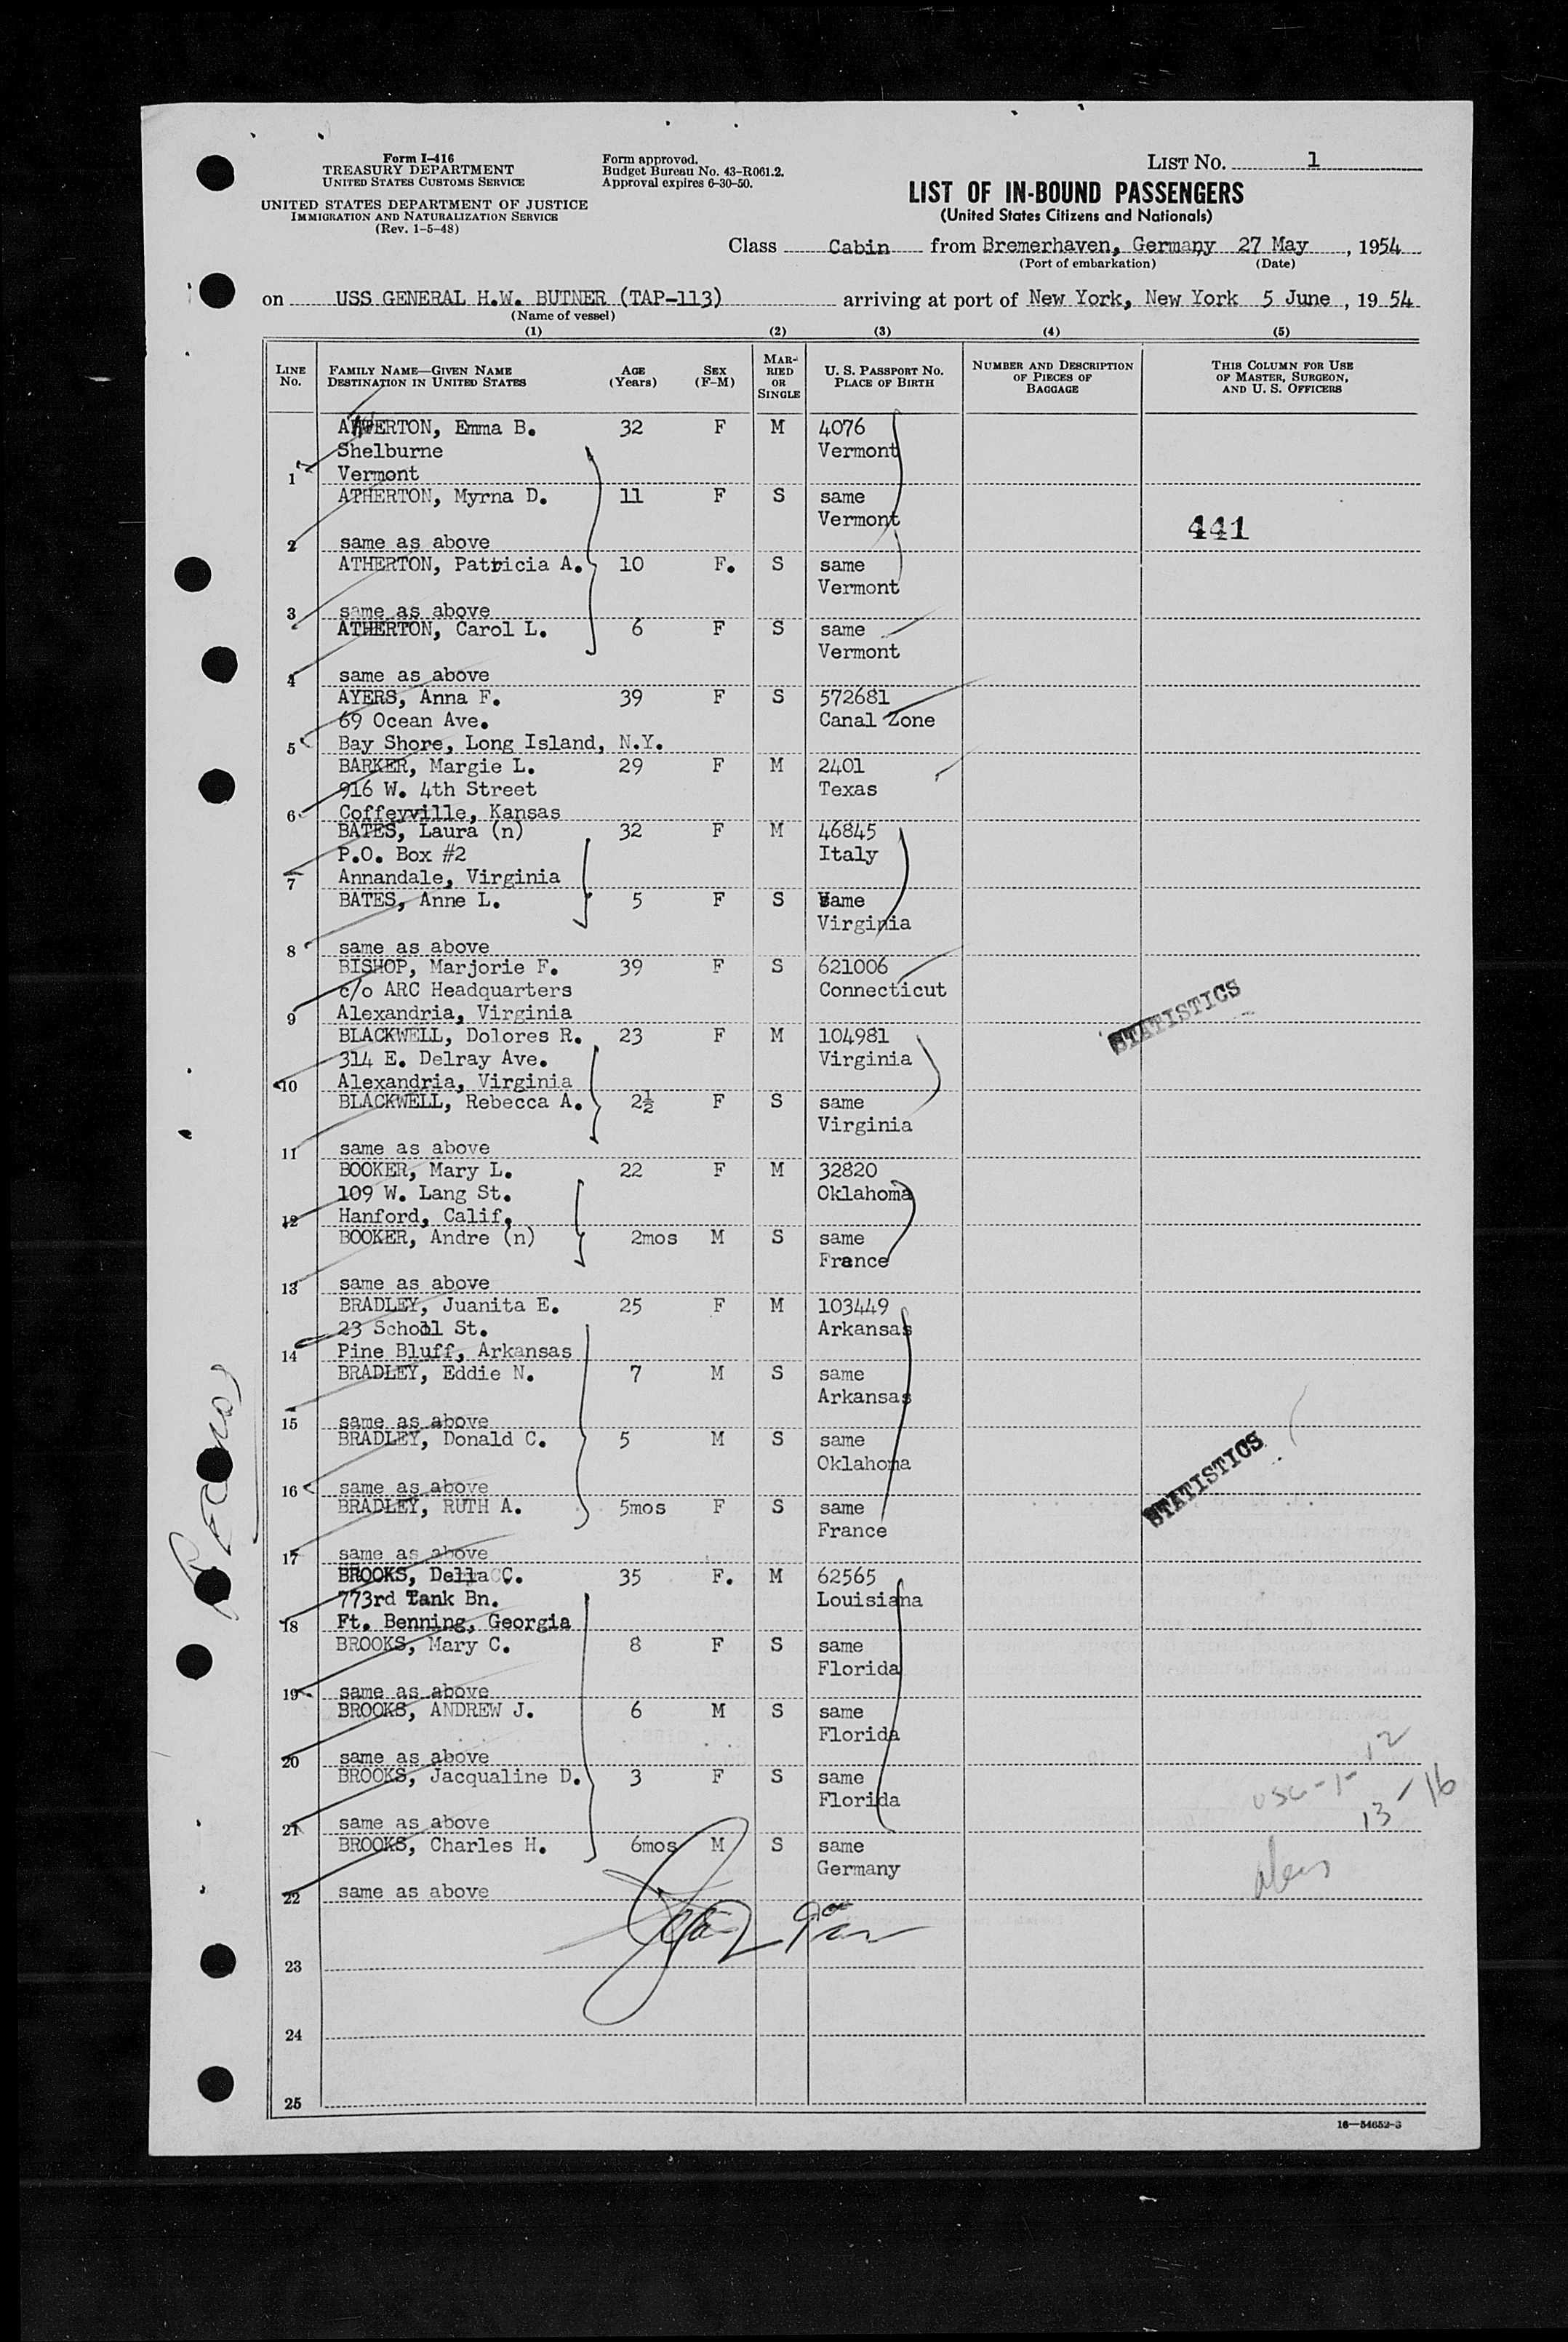 Form I-416
TREASURY DEPARTMENT
UNITED STATES CUSTOMS SERVICE
UNITED STATES DEPARTMENT OF JUSTICE
IMMIGRATION AND NATURALIZATION SERVICE
(Rev. 1-5-48)
Form approved.
Budget Bureau No. 43-R061.2.
Approval expires 6-30-50.
LIST NO. 1
LIST OF IN-BOUND PASSENGERS
(United States Citizens and Nationals)
Class Cabin from Bremerhaven, Germany 27 May, 1954
(Port of embarkation) (Date)
on USS GENERAL H.W. BUTNER (TAP-113) arriving at port of New York, New York 5 June, 1954
(Name of vessel)
(1) (2) (3) (4) (5)
LINE NO. FAMILY NAME—GIVEN NAME DESTINATION IN UNITED STATES AGE (Years) SEX (F-M) MARRIED OR SINGLE U. S. PASSPORT NO. PLACE OF BIRTH NUMBER AND DESCRIPTION OF PIECES OF BAGGAGE THIS COLUMN FOR USE OF MASTER, SURGEON, AND U. S. OFFICERS
ATHERTON, Emma B. 32 F M 4076
Shelburne Vermont
1 Vermont
ATHERTON, Myrna D. 11 F S same
Vermont 441
2 same as above
ATHERTON, Patricia A. 10 F. S same
Vermont
3 same as above
ATHERTON, Carol L. 6 F S same
Vermont
4 same as above
AYERS, Anna F. 39 F S 572681
69 Ocean Ave. Canal Zone
5 Bay Shore, Long Island, N.Y.
BARKER, Margie L. 29 F M 2401
916 W. 4th Street Texas
6 Coffeyville, Kansas
BATES, Laura (n) 32 F M 46845
P.O. Box #2 Italy
7 Annandale, Virginia
BATES, Anne L. 5 F S same
Virginia
8 same as above
BISHOP, Marjorie F. 39 F S 621006
c/o ARC Headquarters Connecticut
9 Alexandria, Virginia STATISTICS
BLACKWELL, Dolores R. 23 F M 104981
314 E. Delray Ave. Virginia
10 Alexandria, Virginia
BLACKWELL, Rebecca A. 2½ F S same
Virginia
11 same as above
BOOKER, Mary L. 22 F M 32820
109 W. Lang St. Oklahoma
12 Hanford, Calif.
BOOKER, Andre (n) 2mos M S same
France
13 same as above
BRADLEY, Juanita E. 25 F M 103449
23 School St. Arkansas
14 Pine Bluff, Arkansas
BRADLEY, Eddie N. 7 M S same
Arkansas
15 same as above
BRADLEY, Donald C. 5 M S same
Oklahoma
16 same as above STATISTICS
BRADLEY, RUTH A. 5mos F S same
France
17 same as above
BROOKS, Della C. 35 F. M 62565
773rd Tank Bn. Louisiana
18 Ft. Benning, Georgia
BROOKS, Mary C. 8 F S same
Florida
19 same as above
BROOKS, ANDREW J. 6 M S same
Florida
20 same as above
12
BROOKS, Jacqualine D. 3 F S same
Florida usc-1-
13-16
21 same as above
BROOKS, Charles H. 6mos M S same
Germany
22 same as above
23
24
25
16—54652-3